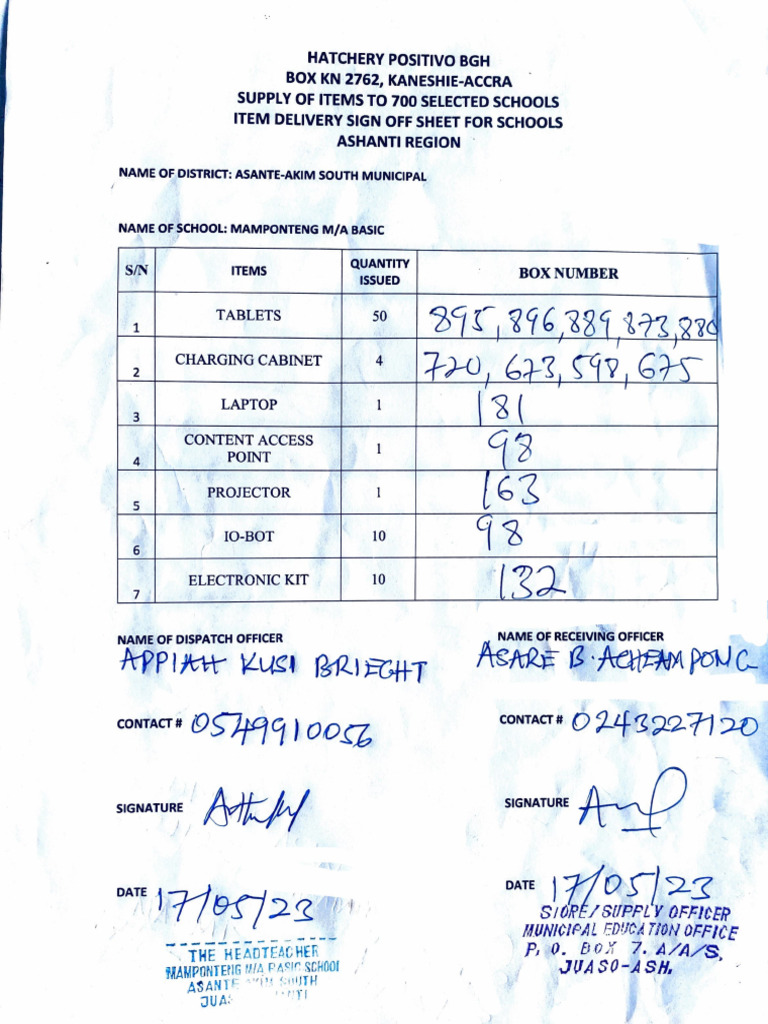 HATCHERY POSITIVO BGH
BOX KN 2762, KANESHIE-ACCRA
SUPPLY OF ITEMS TO 700 SELECTED SCHOOLS
ITEM DELIVERY SIGN OFF SHEET FOR SCHOOLS
ASHANTI REGION
NAME OF DISTRICT: ASANTE-AKIM SOUTH MUNICIPAL
NAME OF SCHOOL: MAMPONTENG M/A BASIC
S/N ITEMS QUANTITY ISSUED BOX NUMBER
1 TABLETS 50 895, 896, 889, 873, 880
2 CHARGING CABINET 4 720, 673, 598, 675
3 LAPTOP 1 181
4 CONTENT ACCESS POINT 1 98
5 PROJECTOR 1 163
6 IO-BOT 10 98
7 ELECTRONIC KIT 10 132
NAME OF DISPATCH OFFICER
APPIAH KUSI BRIEGHT
CONTACT # 0549910056
SIGNATURE
DATE 17/05/23
THE HEADTEACHER
MAMPONTENG M/A BASIC SCHOOL
ASANTE AKIM SOUTH
NAME OF RECEIVING OFFICER
ASARE B. ACHEAMPONG
CONTACT # 0243227120
SIGNATURE
DATE 17/05/23
STORE/SUPPLY OFFICER
MUNICIPAL EDUCATION OFFICE
P. O. BOX 7. A/A/S,
JUASO-ASH.